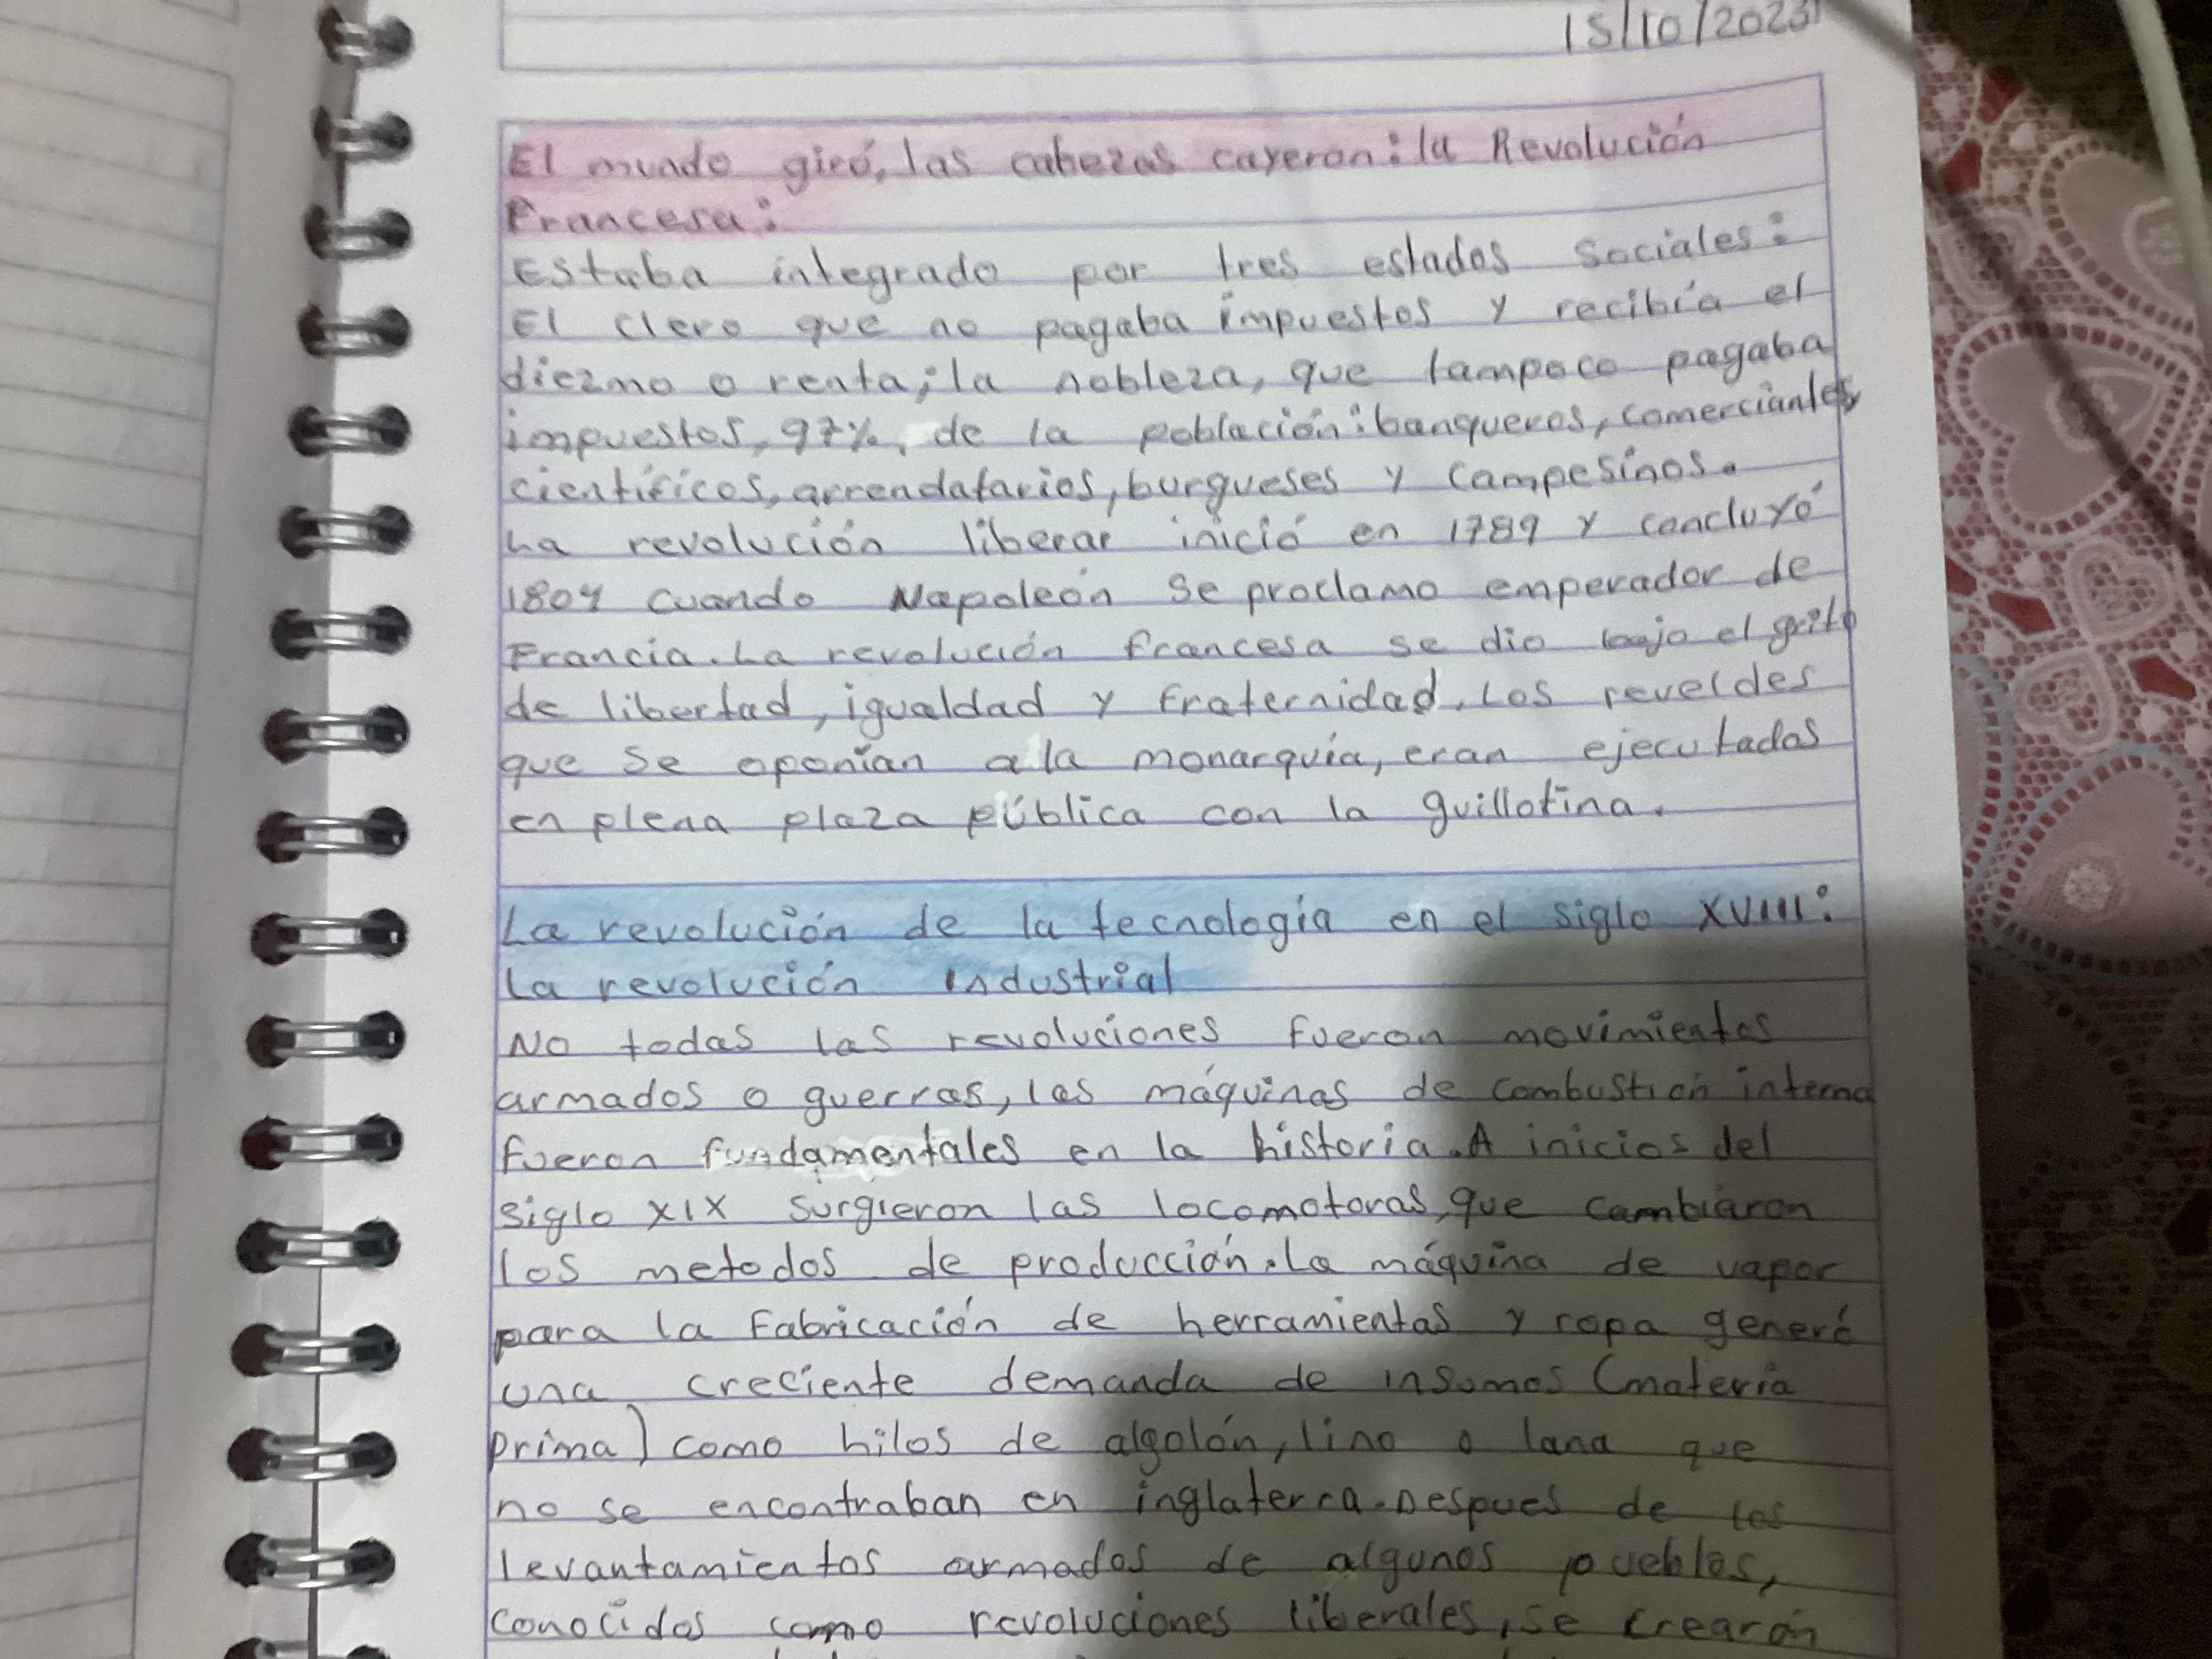 15/10/2023
El mundo giró, las cabezas cayeron: la Revolución
Francesa:
Estaba integrado por tres estados sociales:
El clero que no pagaba impuestos y recibía el
diezmo o renta; la nobleza, que tampoco pagaba
impuestos, 97%, de la población: banqueros, comerciantes,
científicos, arrendatarios, burgueses y campesinos.
La revolución liberar inició en 1789 y concluyó
1804 cuando Napoleón se proclamo emperador de
Francia. La revolución francesa se dio bajo el grito
de libertad, igualdad y fraternidad. Los reveldes
que se oponían a la monarquía, eran ejecutados
en plena plaza pública con la guillotina.
La revolución de la tecnología en el siglo XVIII:
La revolución industrial
No todas las revoluciones fueron movimientos
armados o guerras, las máquinas de combustión interna
fueron fundamentales en la historia. A inicios del
siglo XIX surgieron las locomotoras, que cambiaron
los metodos de producción. La máquina de vapor
para la fabricación de herramientas y ropa generó
una creciente demanda de insumos (materia
prima) como hilos de algolón, lino o lana que
no se encontraban en inglaterra. Despues de los
levantamientos armados de algunos pueblos,
conocidos como revoluciones liberales, se crearón